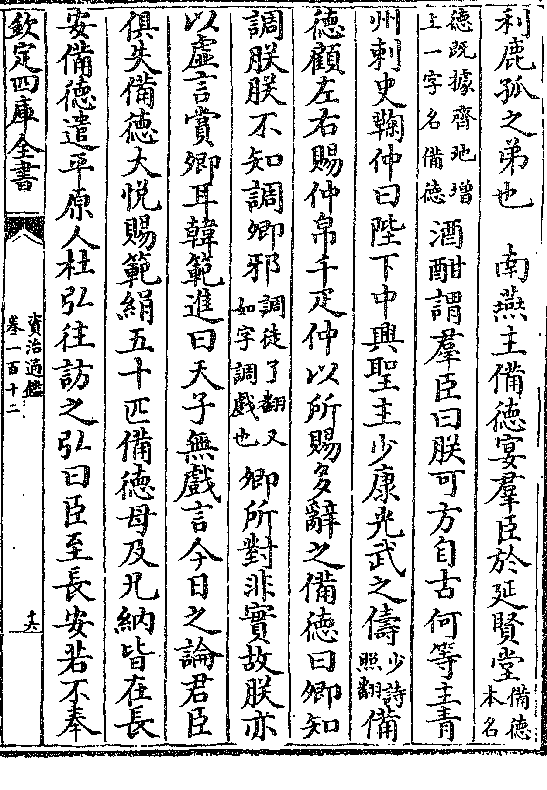 利鹿孤之弟也　南燕主備徳宴羣臣於延賢堂備徳本名
徳既據齊地增上一字名備徳酒酣謂羣臣曰朕可方自古何等主青
州刺史鞠仲曰陛下中興聖主少康光武之儔少詩照翻備
徳顧左右賜仲帛千疋仲以所賜多辭之備徳曰卿知
調朕朕不知調卿邪調徒了翻又如字調戲也卿所對非實故朕亦
以虛言賞卿耳韓範進曰天子無戲言今日之論君臣
俱失備徳大悦賜範絹五十匹備徳母及兄納皆在長
安備徳遣平原人杜弘往訪之弘曰臣至長安若不奉
欽定四庫全書
資治通鑑
卷一百十二
十六